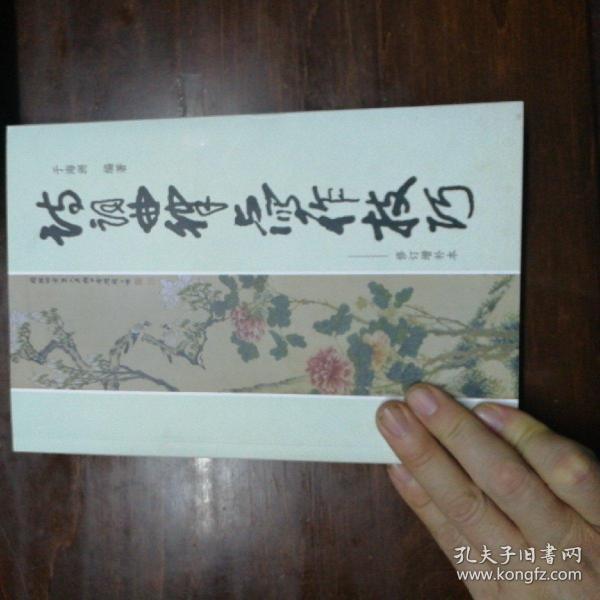 于海洲 编著
诗词曲律与写作技巧
——修订增补本
孔夫子旧书网
www.kongfz.com